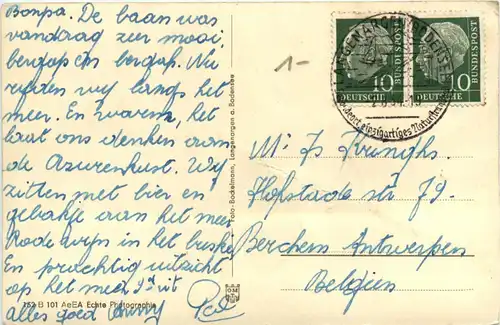 Bonpa. De baan was
vandaag zeer mooi
bergop en bergaf. Nu
rijden wij langs het
meer. En warm, het
laat ons denken aan
de Azurenkust. Wij
zitten met bier en
gebakje aan het meer
Rode wijn in het
En prachtig uitzicht
op het meer
alles goed
Foto-Bockelmann, Langenargen a. Bodensee
152 B 101 AeEA Echte Photographie
1-
LANGENARGEN BODENSEE
einzigartiges
10
DEUTSCHE
BUNDESPOST
10
DEUTSCHE
BUNDESPOST
Mr Js
Hofstade str 79.
Berchem Antwerpen
Belgien